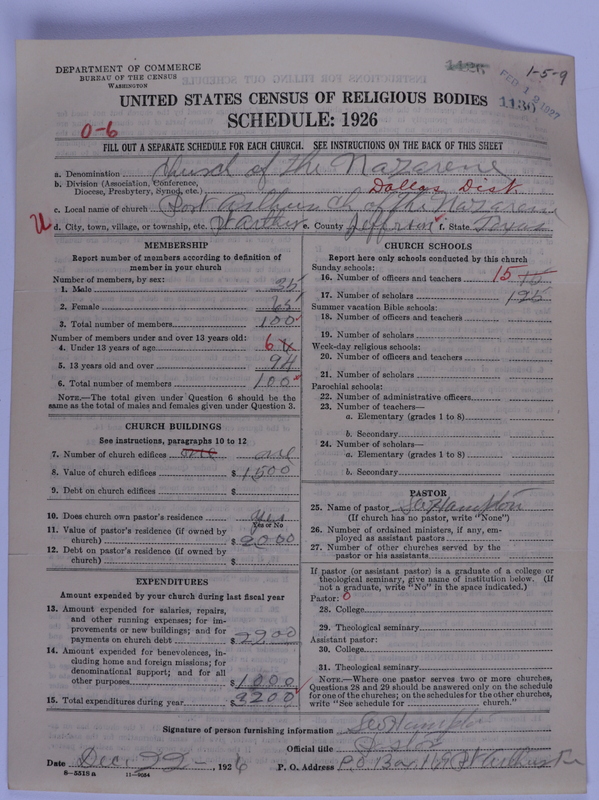 DEPARTMENT OF COMMERCE
BUREAU OF THE CENSUS
WASHINGTON
1-5-9
1130
UNITED STATES CENSUS OF RELIGIOUS BODIES
SCHEDULE: 1926
0-6
FILL OUT A SEPARATE SCHEDULE FOR EACH CHURCH. SEE INSTRUCTIONS ON THE BACK OF THIS SHEET
a. Denomination Church of the Nazarene
b. Division (Association, Conference, Diocese, Presbytery, Synod, etc.) Dallas Dist
c. Local name of church Port Arthur Ch of the Nazarene
d. City, town, village, or township, etc. Pt Arthur e. County Jefferson f. State Texas
MEMBERSHIP
Report number of members according to definition of
member in your church
Number of members, by sex:
1. Male 35
2. Female 65
3. Total number of members 100
Number of members under and over 13 years old:
4. Under 13 years of age 6
5. 13 years old and over 94
6. Total number of members 100
NOTE.—The total given under Question 6 should be the
same as the total of males and females given under Question 3.
CHURCH BUILDINGS
See instructions, paragraphs 10 to 12
7. Number of church edifices one one
8. Value of church edifices $1500
9. Debt on church edifices $
10. Does church own pastor's residence yes
Yes or No
11. Value of pastor's residence (if owned by
church) $2000
12. Debt on pastor's residence (if owned by
church) $
EXPENDITURES
Amount expended by your church during last fiscal year
13. Amount expended for salaries, repairs,
and other running expenses; for im-
provements or new buildings; and for
payments on church debt $2200
14. Amount expended for benevolences, in-
cluding home and foreign missions; for
denominational support; and for all
other purposes $1000
15. Total expenditures during year $3200
CHURCH SCHOOLS
Report here only schools conducted by this church
Sunday schools:
16. Number of officers and teachers 15 15
17. Number of scholars 125
Summer vacation Bible schools:
18. Number of officers and teachers
19. Number of scholars
Week-day religious schools:
20. Number of officers and teachers
21. Number of scholars
Parochial schools:
22. Number of administrative officers
23. Number of teachers—
a. Elementary (grades 1 to 8)
b. Secondary
24. Number of scholars—
a. Elementary (grades 1 to 8)
b. Secondary
PASTOR
25. Name of pastor Hampton
(If church has no pastor, write "None")
26. Number of ordained ministers, if any, em-
ployed as assistant pastors
27. Number of other churches served by the
pastor or his assistants
If pastor (or assistant pastor) is a graduate of a college or
theological seminary, give name of institution below. (If
not a graduate, write "No" in the space indicated.)
Pastor: 0
28. College
29. Theological seminary
Assistant pastor:
30. College
31. Theological seminary
NOTE.—Where one pastor serves two or more churches,
Questions 28 and 29 should be answered only on the schedule
for one of the churches; on the schedules for the other churches,
write "See schedule for church."
Signature of person furnishing information Hampton
Official title Pastor
Date Dec 22 , 1926 P. O. Address P.O. Box Pt Arthur
8-5518 a 11-9054